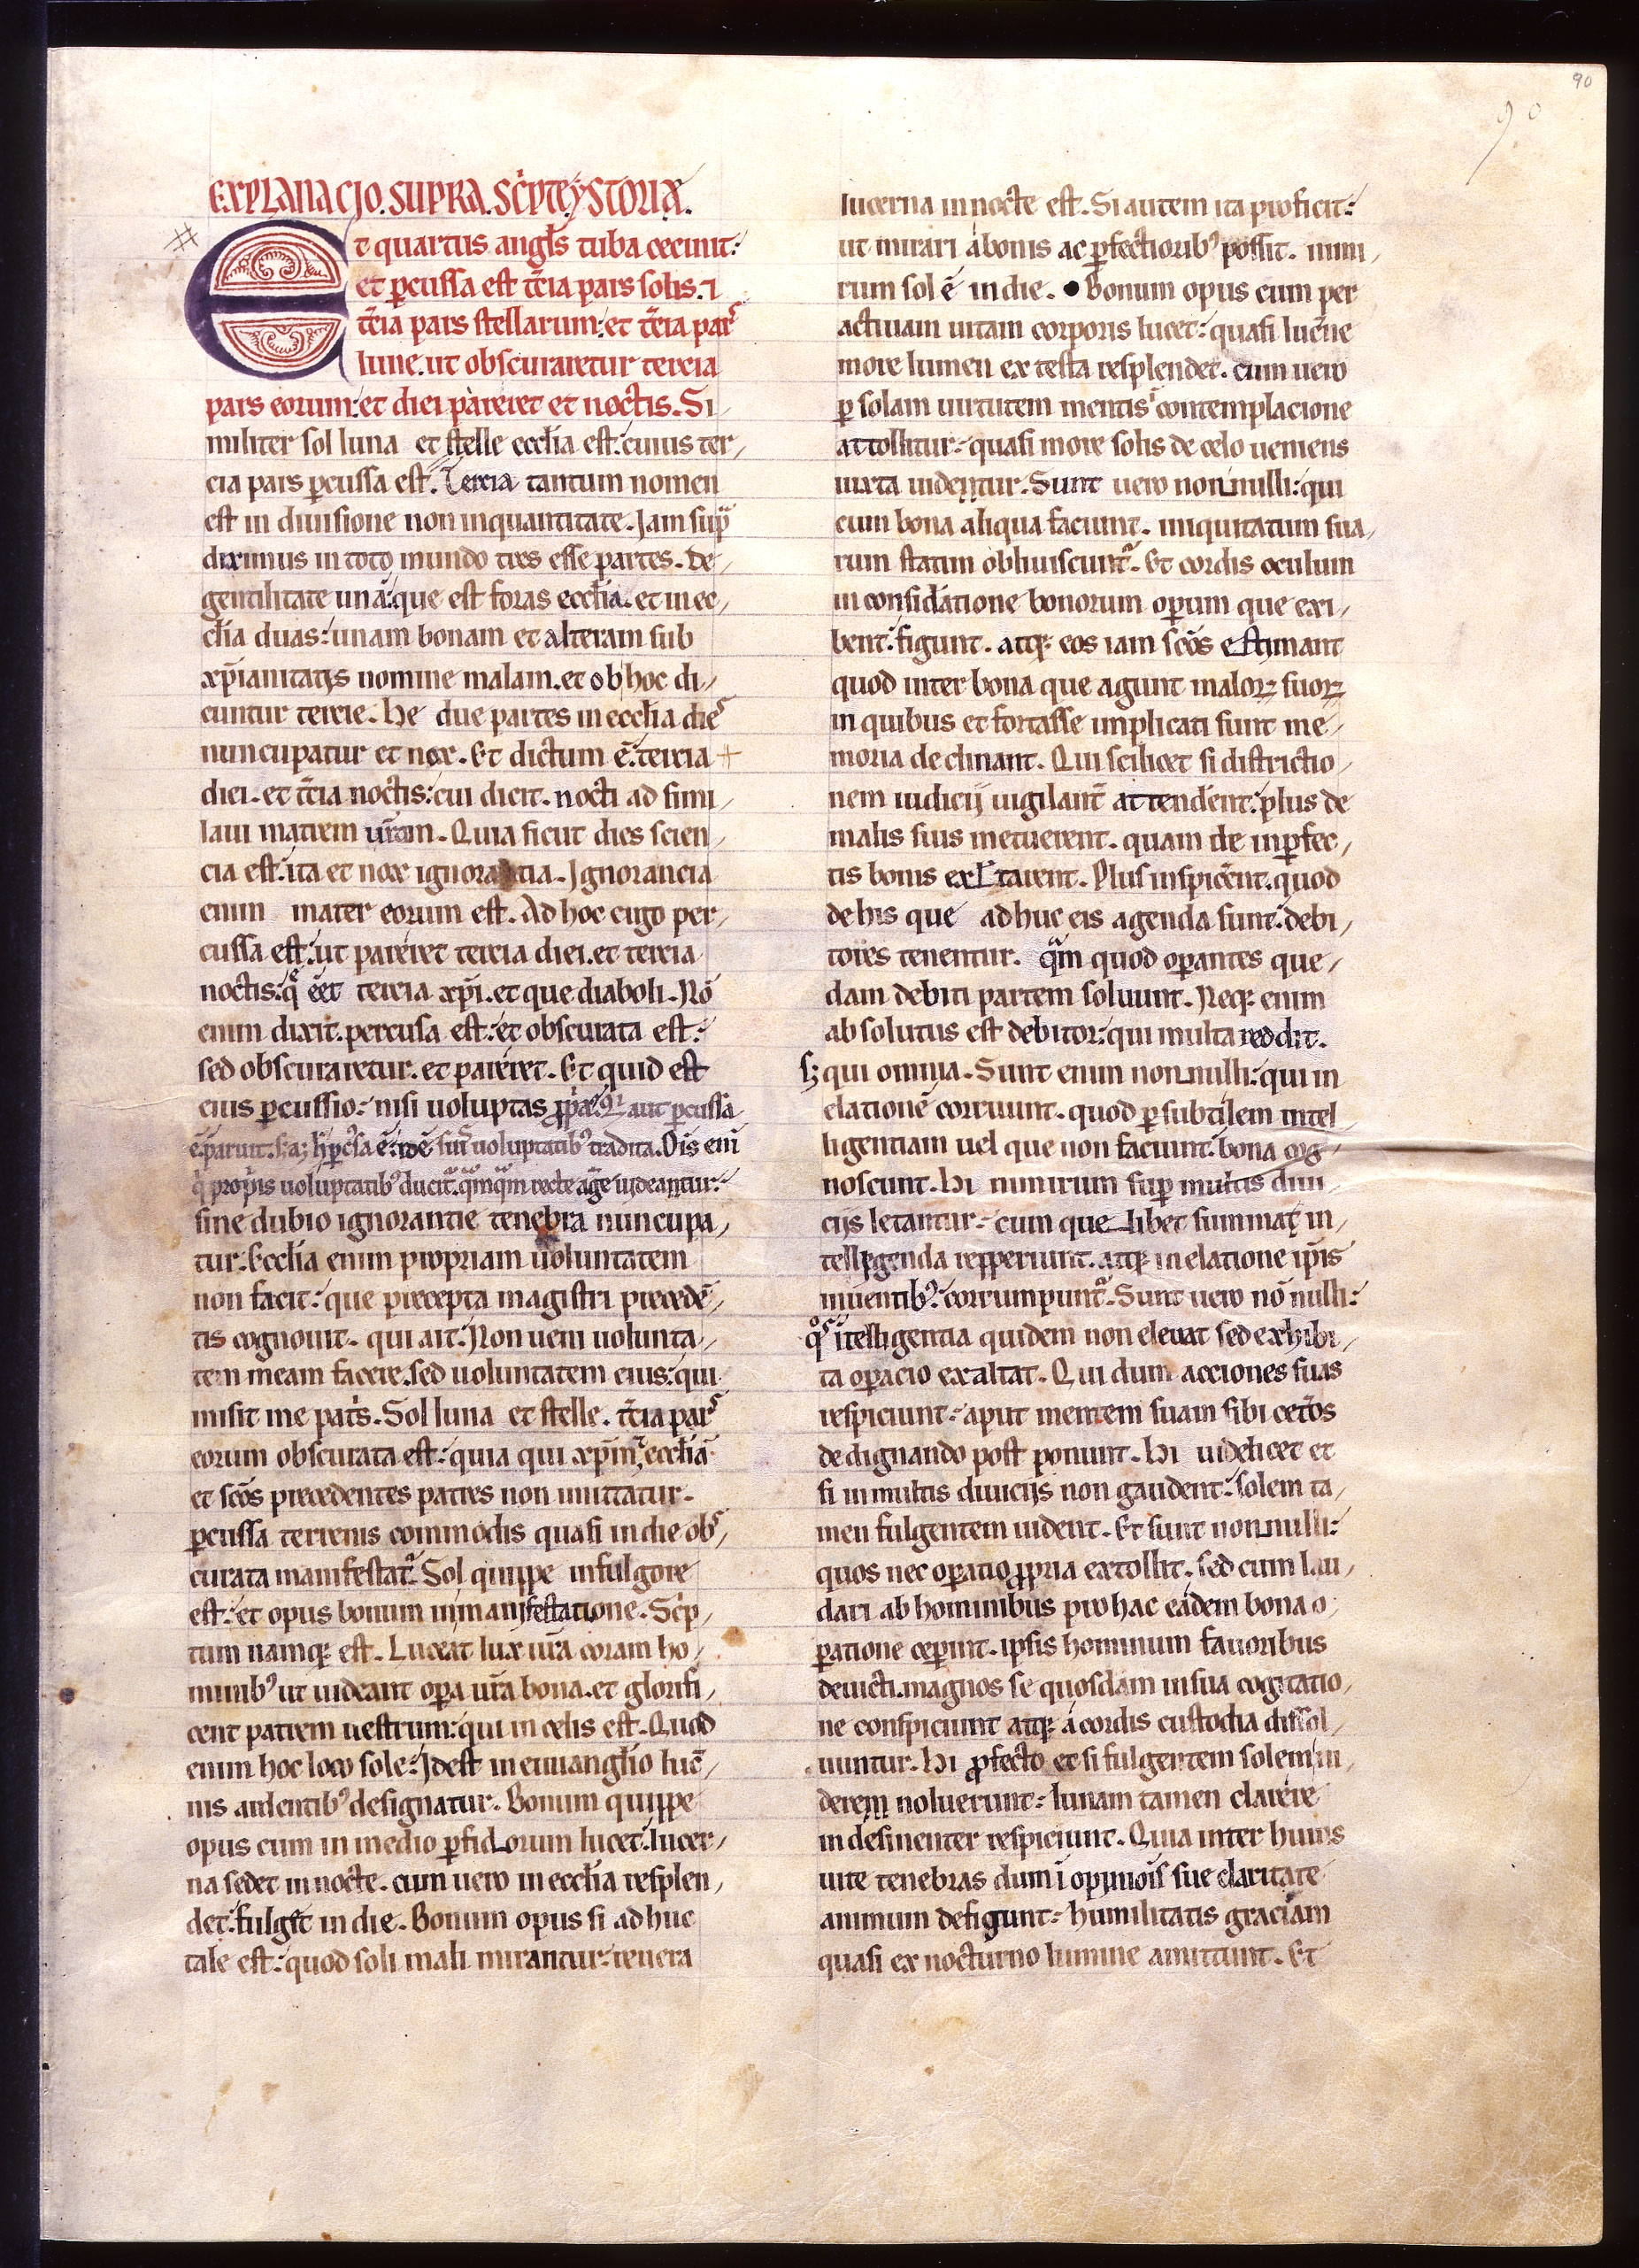 90
90
EXPLANACJO. SUPRA. SC̃PTE. YSTORIÆ.
Et quartus angl̃s tuba cecinit:
et ꝑcussa est t̃cia pars solis. ⁊
t̃cia pars stellarum: et t̃cia pars
lune. ut obscuraretur tercia
pars eorum: et diei pareret et noctis. Si
militer sol luna et stelle eccl̃ia est: cuius ter
cia pars ꝑcussa est. Tercia tantum nomen
est in diuisione non inquantitate. Jam sup̃
diximus in toto mundo tres esse partes. De
gentilitate unã: que est foras eccl̃ia. et in ec
cl̃ia duas: unam bonam et alteram sub
xp̃ianitatis nomine malam. et ob hoc di
cuntur tercie. He due partes in eccl̃ia dies
nuncupatur et nox. Et dictum ẽ: tercia
diei. et t̃cia noctis: cui dicit. nocti ad simi
laui matrem ur̃am. Quia sicut dies scien
cia est. ita et nox ignorantia. Ignorancia
enim mater eorum est. Ad hoc ergo per
cussa est: ut pareret tercia diei. et tercia
noctis: q̃ ẽet tercia xp̃i. et que diaboli. Nõ
enim dixit. percusa est: et obscurata est:
sed obscuraretur. et pareret. Et quid est
eius ꝑcussio: nisi uoluptas ꝓp̃a. aut ꝑcussa
uoluptatib⁹ tradita. Oĩs eni
q̃ propriis uoluptatib⁹ ducit̃. recte aḡe uideantur:
sine dubio ignorantie tenebra nuncupa
tur. Eccl̃ia enim propriam uoluntatem
non facit: que precepta magistri precedẽ
tis cognouit. qui ait: Non ueni uolunta
tem meam facere. sed uoluntatem eius: qui
misit me patris. Sol luna et stelle. t̃cia pars
eorum obscurata est: quia qui xp̃m ⁊ eccl̃iã
et sc̃os precedentes patres non imittatur.
ꝑcussa terrenis commodis quasi in die obs
curata manifestat̃. Sol quippe in fulgore
est: et opus bonum in manifestatione. Sc̃p
tum namq; est. Luceat lux ur̃a coram ho
minib⁹ ut uideant oꝑa ur̃a bona. et glorifi
cent patrem uestrum: qui in celis est. Quod
enim hoc loco sole: Jdest in euuanglio luc̃
nis ardentib⁹ designatur. Bonum quippe
opus cum in medio ꝑfidorum lucet: lucer
na sedet in nocte. cum uero in eccl̃ia resplen
det: fulget in die. Bonum opus si adhuc
tale est: quod soli mali mirantur: reuera
lucerna in nocte est. Si autem ita proficit:
ut mirari a bonis ac ꝑfectiorib⁹ possit. nimi
rum sol ẽ in die. Bonum opus cum per
actiuam uitam corporis lucet: quasi luc̃ne
more lumen ex testa resplendet. cum uero
ꝑ solam uirtutem mentis contemplacione
attollitur: quasi more solis de celo ueniens
iuxta uidentur. Sunt uero nonnulli: qui
cum bona aliqua faciunt. iniquitatum sua
rum statim obliuiscunt̃. Et cordis oculum
in considatione bonorum oꝑum que exi
bent: figunt. atq; eos iam sc̃os estimant
quod inter bona que agunt maloꝝ suoꝝ
in quibus et fortasse implicati sunt me
moria declinant. Qui scilicet si districtio
nem iudicij uigilant̃ attendent: plus de
malis suis metuerent. quam de inꝑfec
tis bonis exl̃tarent. Plus inspic̃ent. quod
de his que adhuc eis agenda sunt: debi
tores tenentur. q̃m quod oꝑantes que
dam debiti partem soluunt. Neq; enim
absolutus est debitor: qui multa reddit.
s; qui omnia. Sunt enim nonnulli: qui in
elationẽ corruunt. quod ꝑ subtilem intel
ligentiam uel que non faciunt: bona cog
noscunt. Hi nimirum suꝑ multis diui
cijs letantur: cum que libet summat in
telligenda repperiunt. atq; in elatione ip̃is
inuentib⁹: corrumpunt̃. Sunt uero nõ nulli:
q̃s ĩtelligentia quidem non eleuat sed exhibi
ta oꝑacio exaltat. Qui dum acciones suas
respiciunt: aput mentem suam sibi cet̃os
dedignando post ponunt. Hi uidelicet et
si in multis diuicijs non gaudent: solem ta
men fulgentem uident. Et sunt nonnulli:
quos nec oꝑatio ꝓpria extollit. sed cum lau
dari ab hominibus pro hac eadem bona o
ꝑatione ceꝑint. ipsis hominum fauoribus
deuicti. magnos se quosdam in sua cogitatio
ne conspiciunt atq; a cordis custodia dissol
uuntur. Hi ꝓfecto et si fulgentem solem ui
derem noluerunt: lunam tamen clarere
indesinenter respiciunt. Quia inter huius
uite tenebras dum ĩ opinioĩs sue claritate
animum defigunt: humilitatis graciam
quasi ex nocturno lumine amittunt. Et